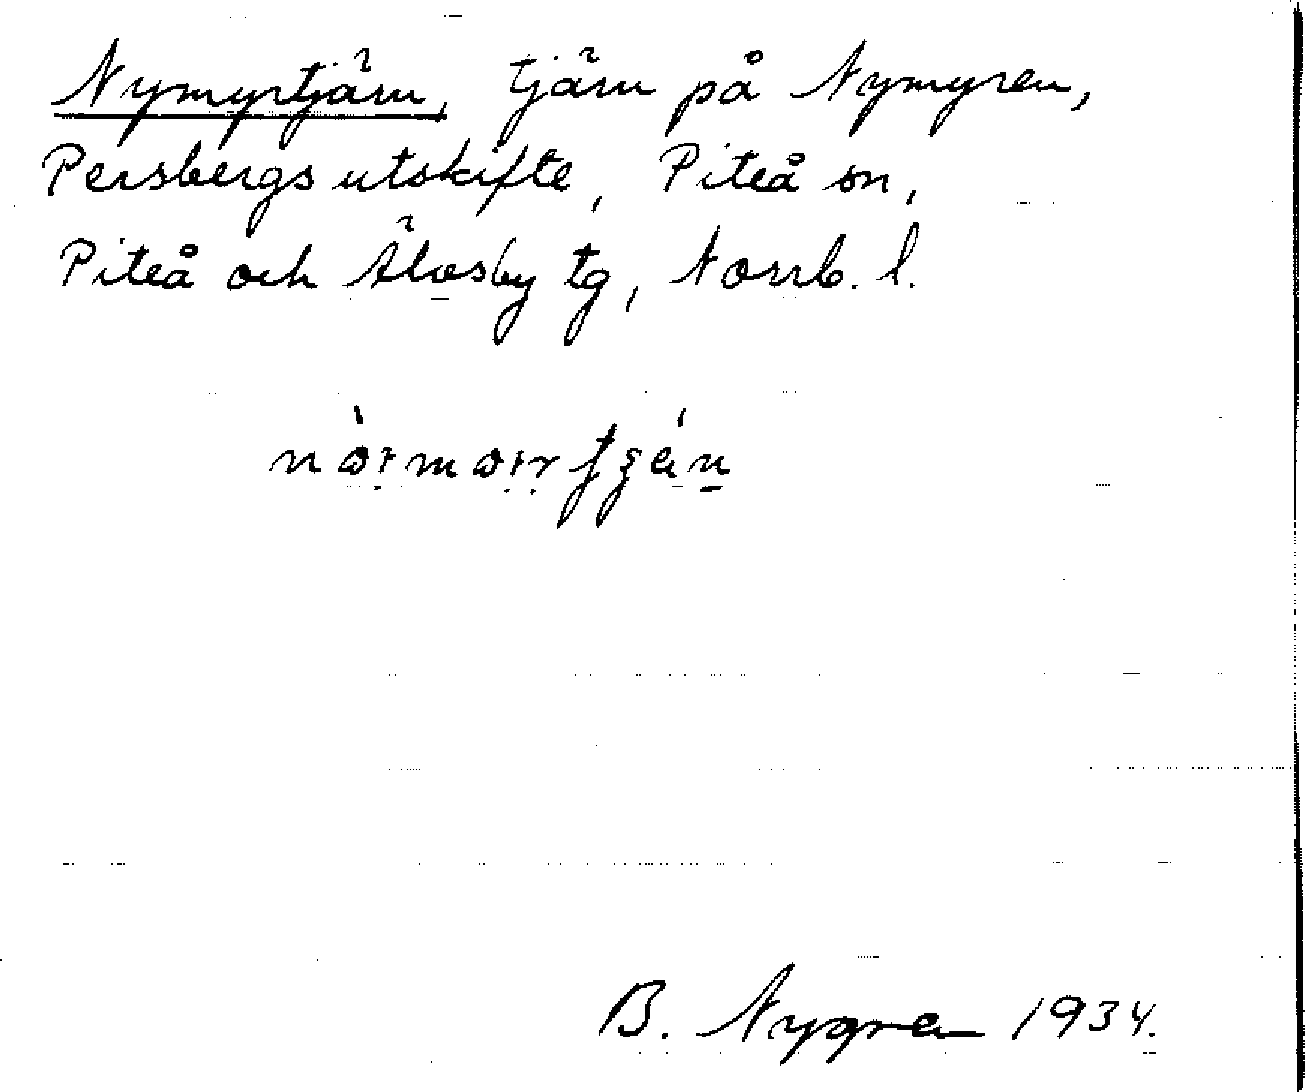 Nymyrtjärn, tjärn på Nymyren,
Persbergs utskifte, Piteå sn,
Piteå och Älvsby tg, Norrb. l.
B. Nygren 1934.